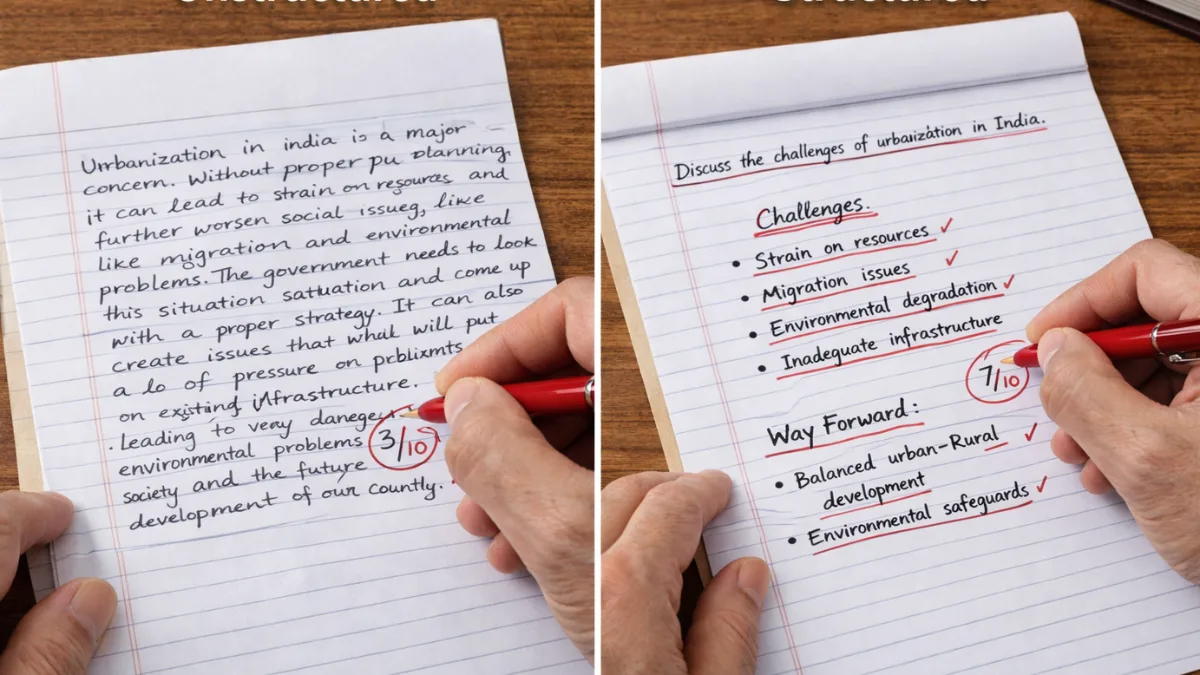 Unstructured
Urrbanization in india is a major
concern. Without proper pu planning,
it can lead to strain on resources and
further worsen social issueg, like
like migration and environmental
problems. The government needs to look
this situation satuation and come up
with a proper strategy. It can also
create issues that what will put
a lo of pressure on prblixmts
on existing infrastructure.
. Leading to very danegeur
environmental problems
society and the future
development of our countly.
3/10
Structured
Discuss the challenges of urbanization in India.
Challenges.
• Strain on resources ✓
• Migration issues ✓
• Environmental degradation ✓
• Inadequate infrastructure
7/10
Way Forward:
• Balanced urban-Rural ✓
development
• Environmental safeguards ✓